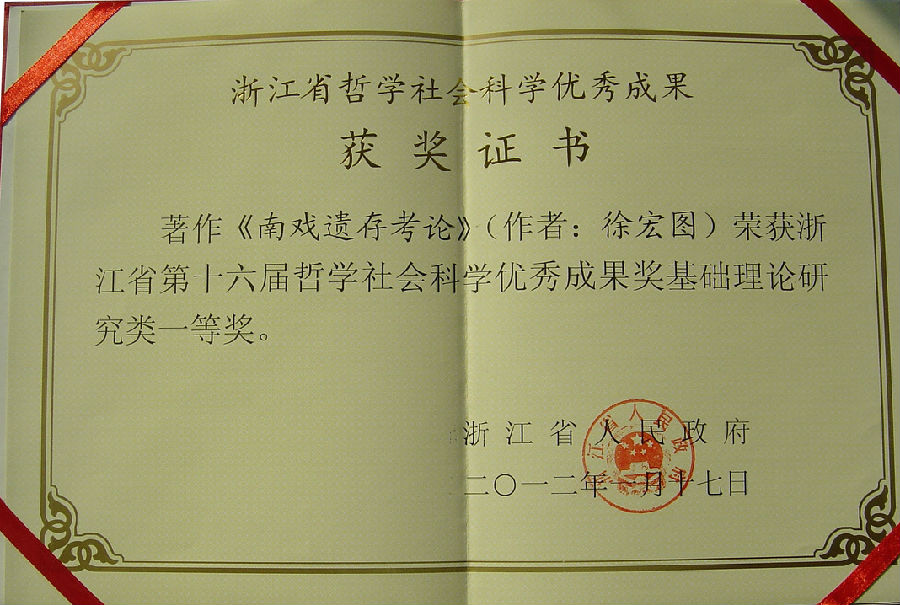 浙江省哲学社会科学优秀成果
获奖证书
著作《南戏遗存考论》（作者：徐宏图）荣获浙
江省第十六届哲学社会科学优秀成果奖基础理论研
究类一等奖。
浙江省人民政府
二〇一二年一月十七日
浙江省人民政府